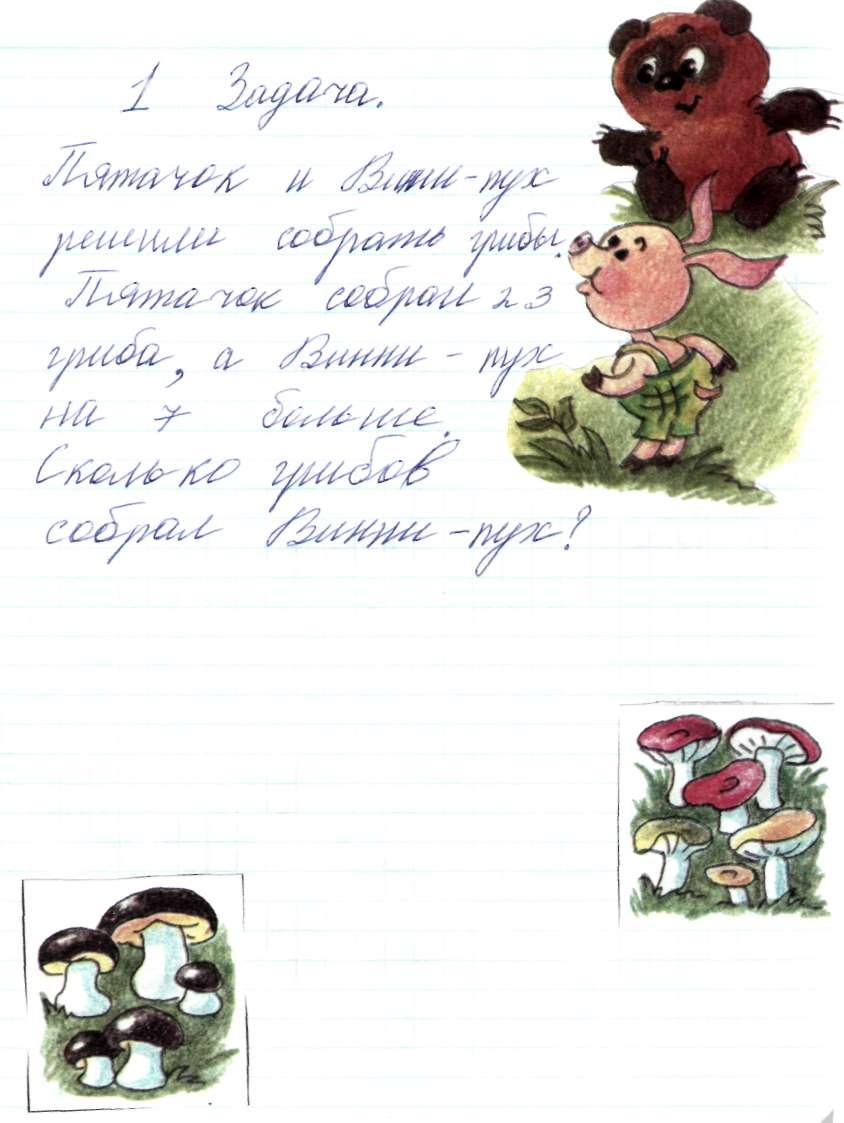 1 Задача.
Пятачок и Винни-пух
решили собрать грибы.
Пятачок собрал 23
гриба, а Винни-пух
на 7 больше.
Сколько грибов
собрал Винни-пух?